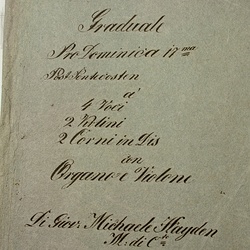 Graduale
Pro Dominica 17ma
Post Pentecosten
à
4 Voci
2 Violini
2 Corni in Dis
con
Organo e Violone
Di Giov. Michaele Hayden
M. di C